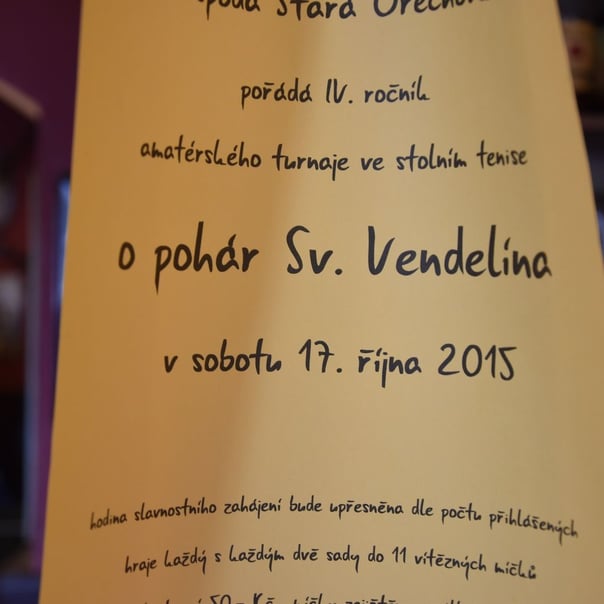 Stará
pořádá IV. ročník
amatérského turnaje ve stolním tenise
o pohár Sv. Vendelína
v sobotu 17. října 2015
hodina slavnostního zahájení bude upřesněna dle počtu přihlášených
hraje každý s každým dvě sady do 11 vítězných míčků
50,- Kč